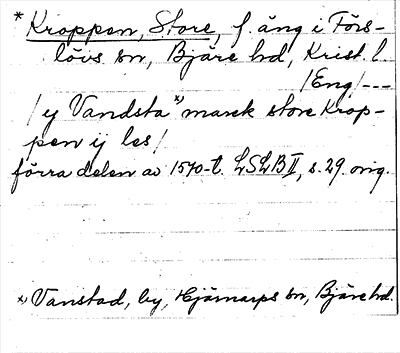 * Kroppen, Store, f. äng i Förs-
lövs sn, Bjäre hd, Krist. l.
/Eng/---
/ ey Vandsta x) marck store Krop-
pen ij les /
förra delen av 1570-t. LSLB II, s. 29. orig.
x) Vanstad, by, Hjärnarps sn, Bjäre hd.